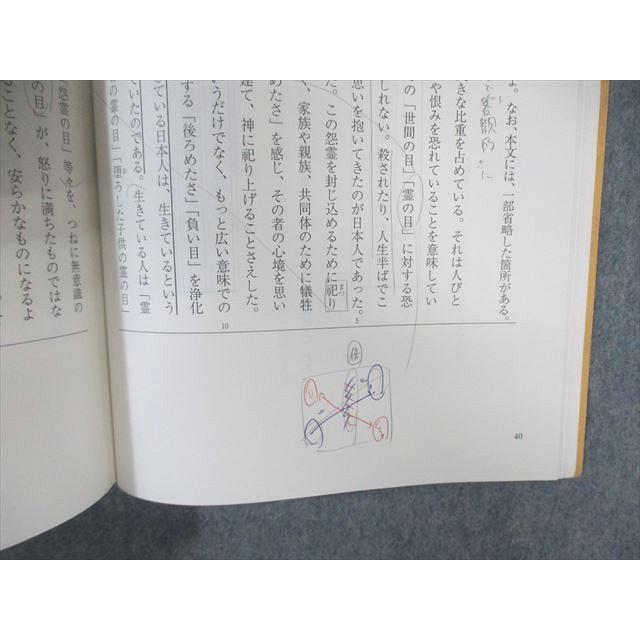 よ。なお、本文には、一部省略した箇所がある。
客観的
きな比重を占めている。それは人びと
や恨みを恐れていることを意味してい
の「世間の目」「霊の目」に対する恐
しれない。殺されたり、人生半ばでこ
思いを抱いてきたのが日本人であった。
5
た。この怨霊を封じ込めるために祀り
まつ
、家族や親族、共同体のために犠牲
めたさ」を感じ、その者の心境を思い
建て、神に祀り上げることさえした。
うだけでなく、もっと広い意味での
10
する「後ろめたさ」「負い目」を浄化
ている日本人は、生きているという
ていたのである。生きている人は「霊
の霊の目」「堕ろした子供の霊の目」
「怨霊の目」等々を、つねに無意識の
の目」が、怒りに満ちたものではな
ることなく、安らかなものになるよ
40